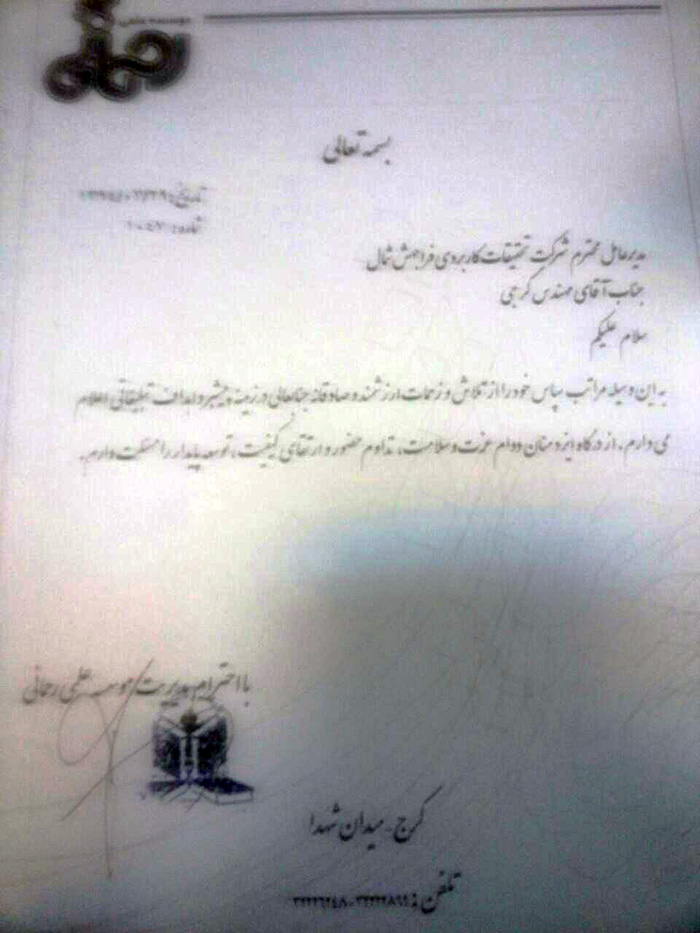 موسسه علمی
رحمانی
بسمه تعالی
تاریخ:
شماره:
مدیرعامل محترم شرکت تحقیقات کاربردی فراجهش شمال
جناب آقای مهندس کرجی
سلام علیکم
به این وسیله مراتب سپاس خود را از تلاش و زحمات ارزشمند و صادقانه جنابعالی در زمینه پیشبرد اهداف تبلیغاتی اعلام
می دارم. از درگاه ایزد منان دوام عزت و سلامت، تداوم حضور و ارتقای کیفیت، توسعه پایدار را مسئلت دارم.
با احترام مدیریت موسسه علمی رحمانی
کرج - میدان شهدا
تلفن: